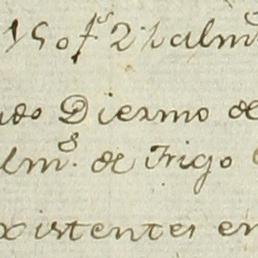 150 f.s 2½ alm.s
do Diezmo de
lm.s de Trigo
existentes en